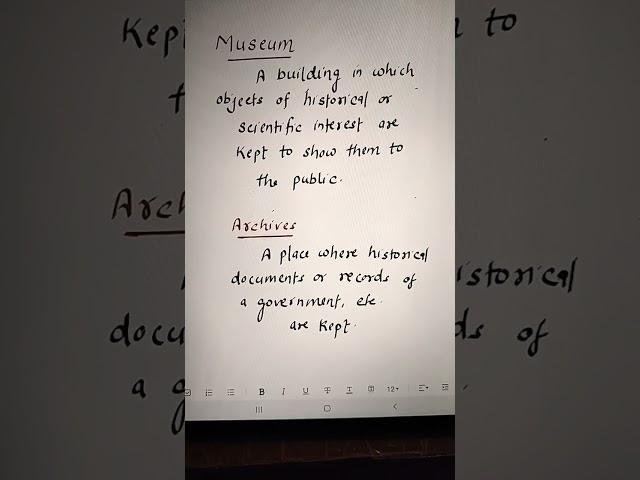 Museum
A building in which
objects of historical or
scientific interest are
Kept to show them to
the public.
Archives
A place where historical
documents or records of
a government, etc.
are Kept.
B I U T T 12